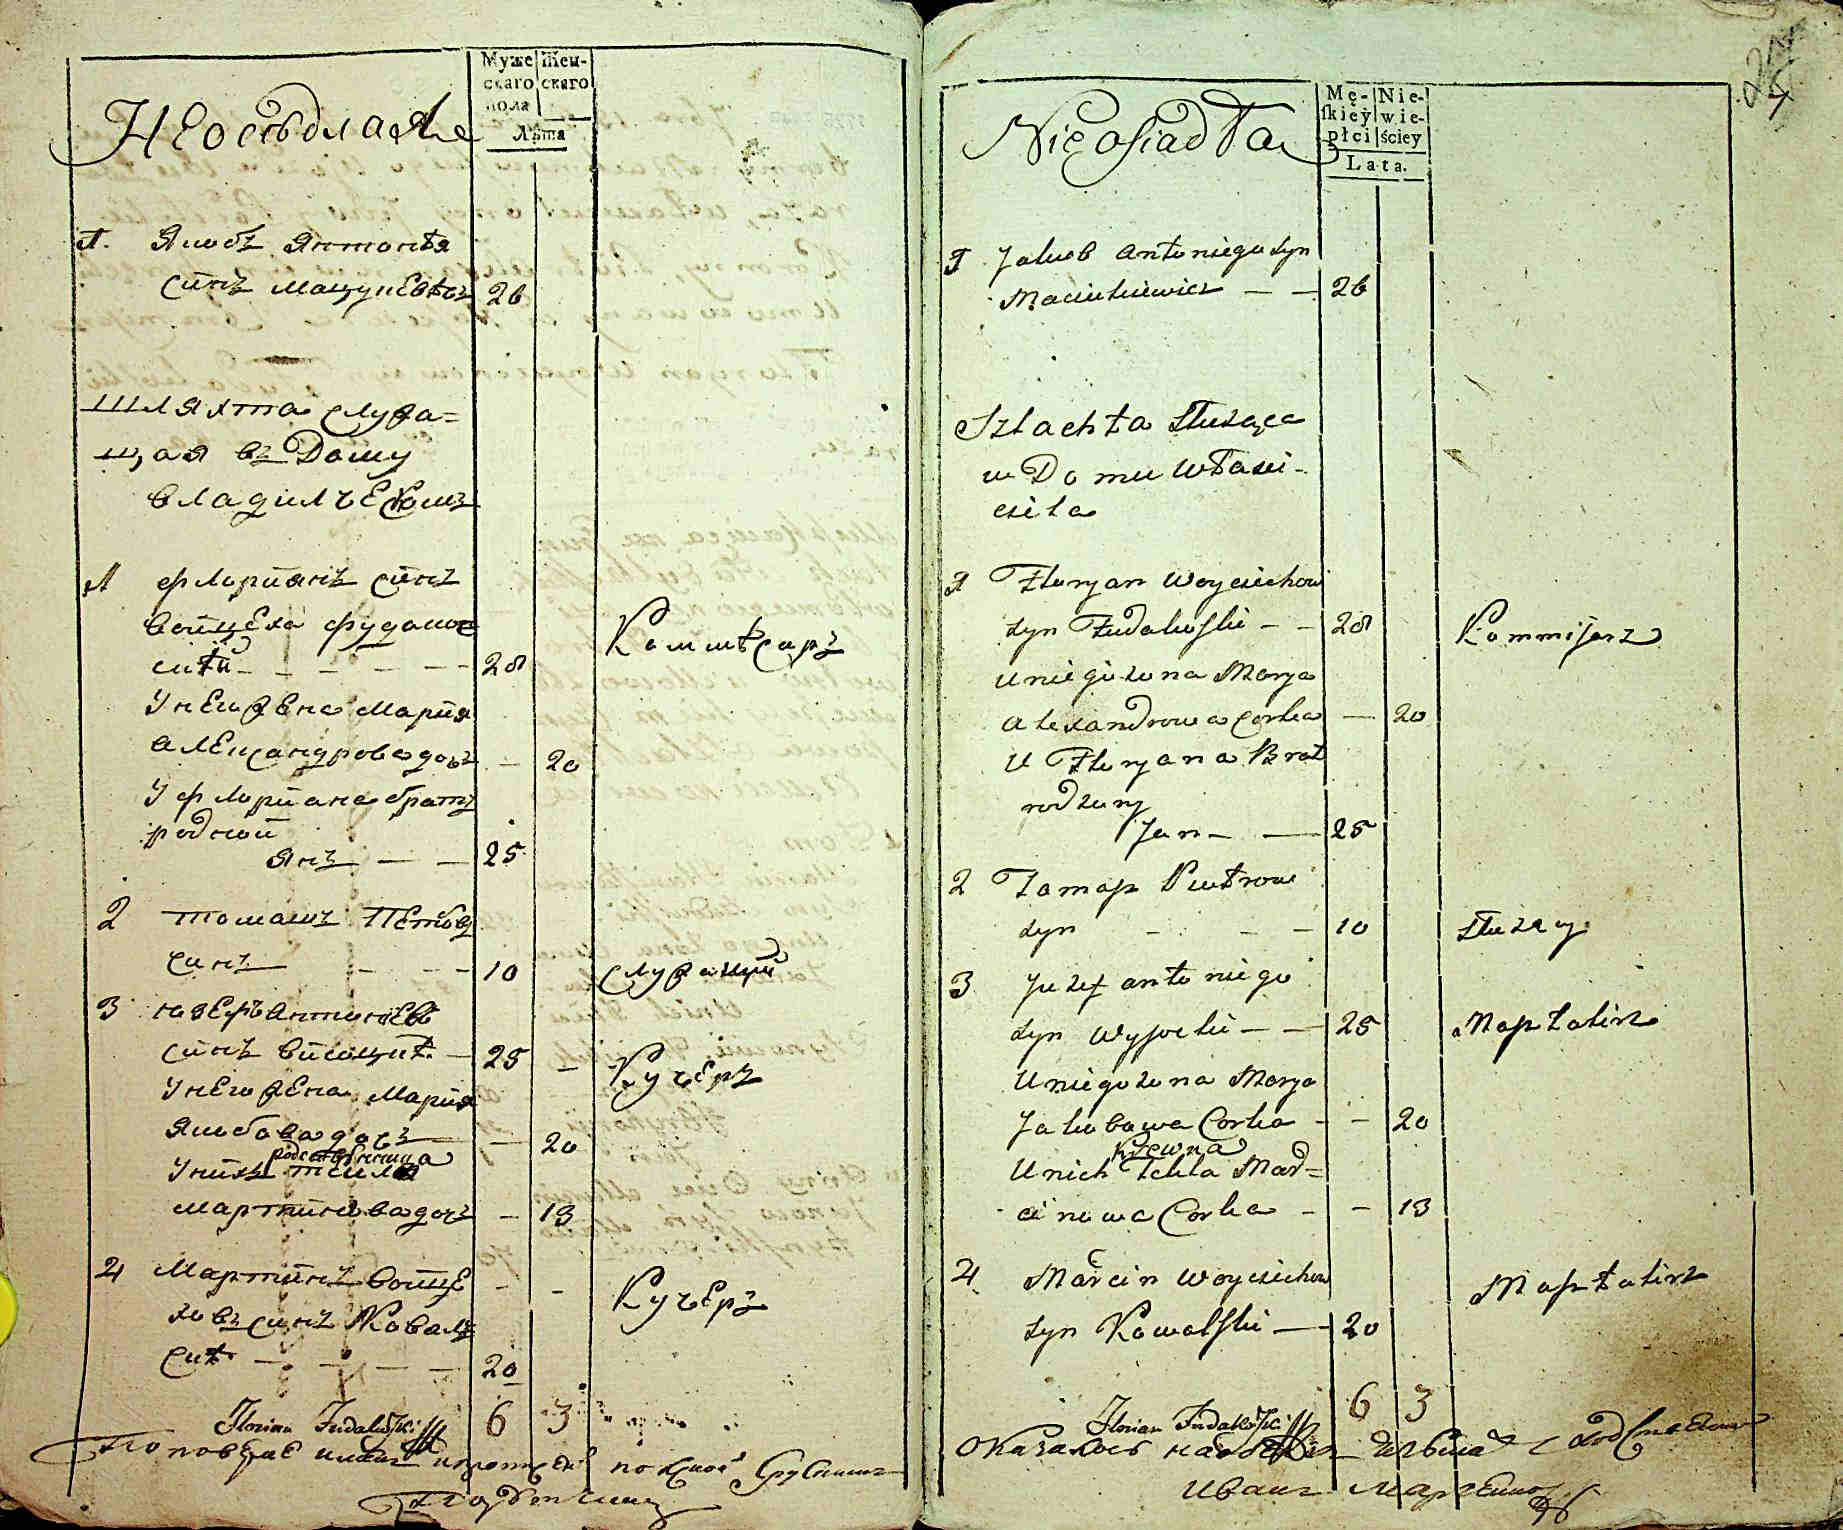 Муже Жен-
скаго скаго
пола
Лѣта
Неосѣдлая
1. Якобъ Антонія
синъ Мацукевичъ 26
Шляхта служа=
щая въ Дому
владильческомъ
1 Флоріянъ синъ
Войцеха Фудаков
скій - - - - - 28 Коммисаръ
У него жена Марія
Александрова дочь - 20
У Флоріана братъ
родной
Янъ - - 25
2 Томашъ Петровъ
синъ - - - 10 служащій
3 Юзефъ Антоніевъ
синъ Висоцкі - 25 - Кучеръ
У него жена Марія
Якобова дочь - 20
родственница
У нихъ Текля
Мартинова дочь - 13
4 Мартинъ Войце - - Кучеръ
ховъ синъ Коваль
скі - - - - 20
6 3
Florian Fudakowski
Mę- Nie-
skiey wie-
płci ściey
Lata.
Nieosiadła
1 Jakub Antoniego syn
Maciukiewicz - - 26
Szlachta służąca
w Domu właści-
ciela
1 Floryan Woyciechow
syn Fudakowski - - 28 Kommisarz
U niego żona Marya
Alexandrowa Corka - 20
U Floryana Brat
rodzony
Jan - - 25
2 Tomasz Piotrow
syn - - - 10 służący
3 Juzef Antoniego
syn Wysocki - - 25 Masztalirz
U niego żona Marya
Jakubowa Corka - - 20
krewna
U nich Tekla Mar=
cinowa Corka - - 13
4 Marcin Woyciechow Masztalirz
syn Kowalski - 20
6 3
Florian Fudakowski
Иванъ